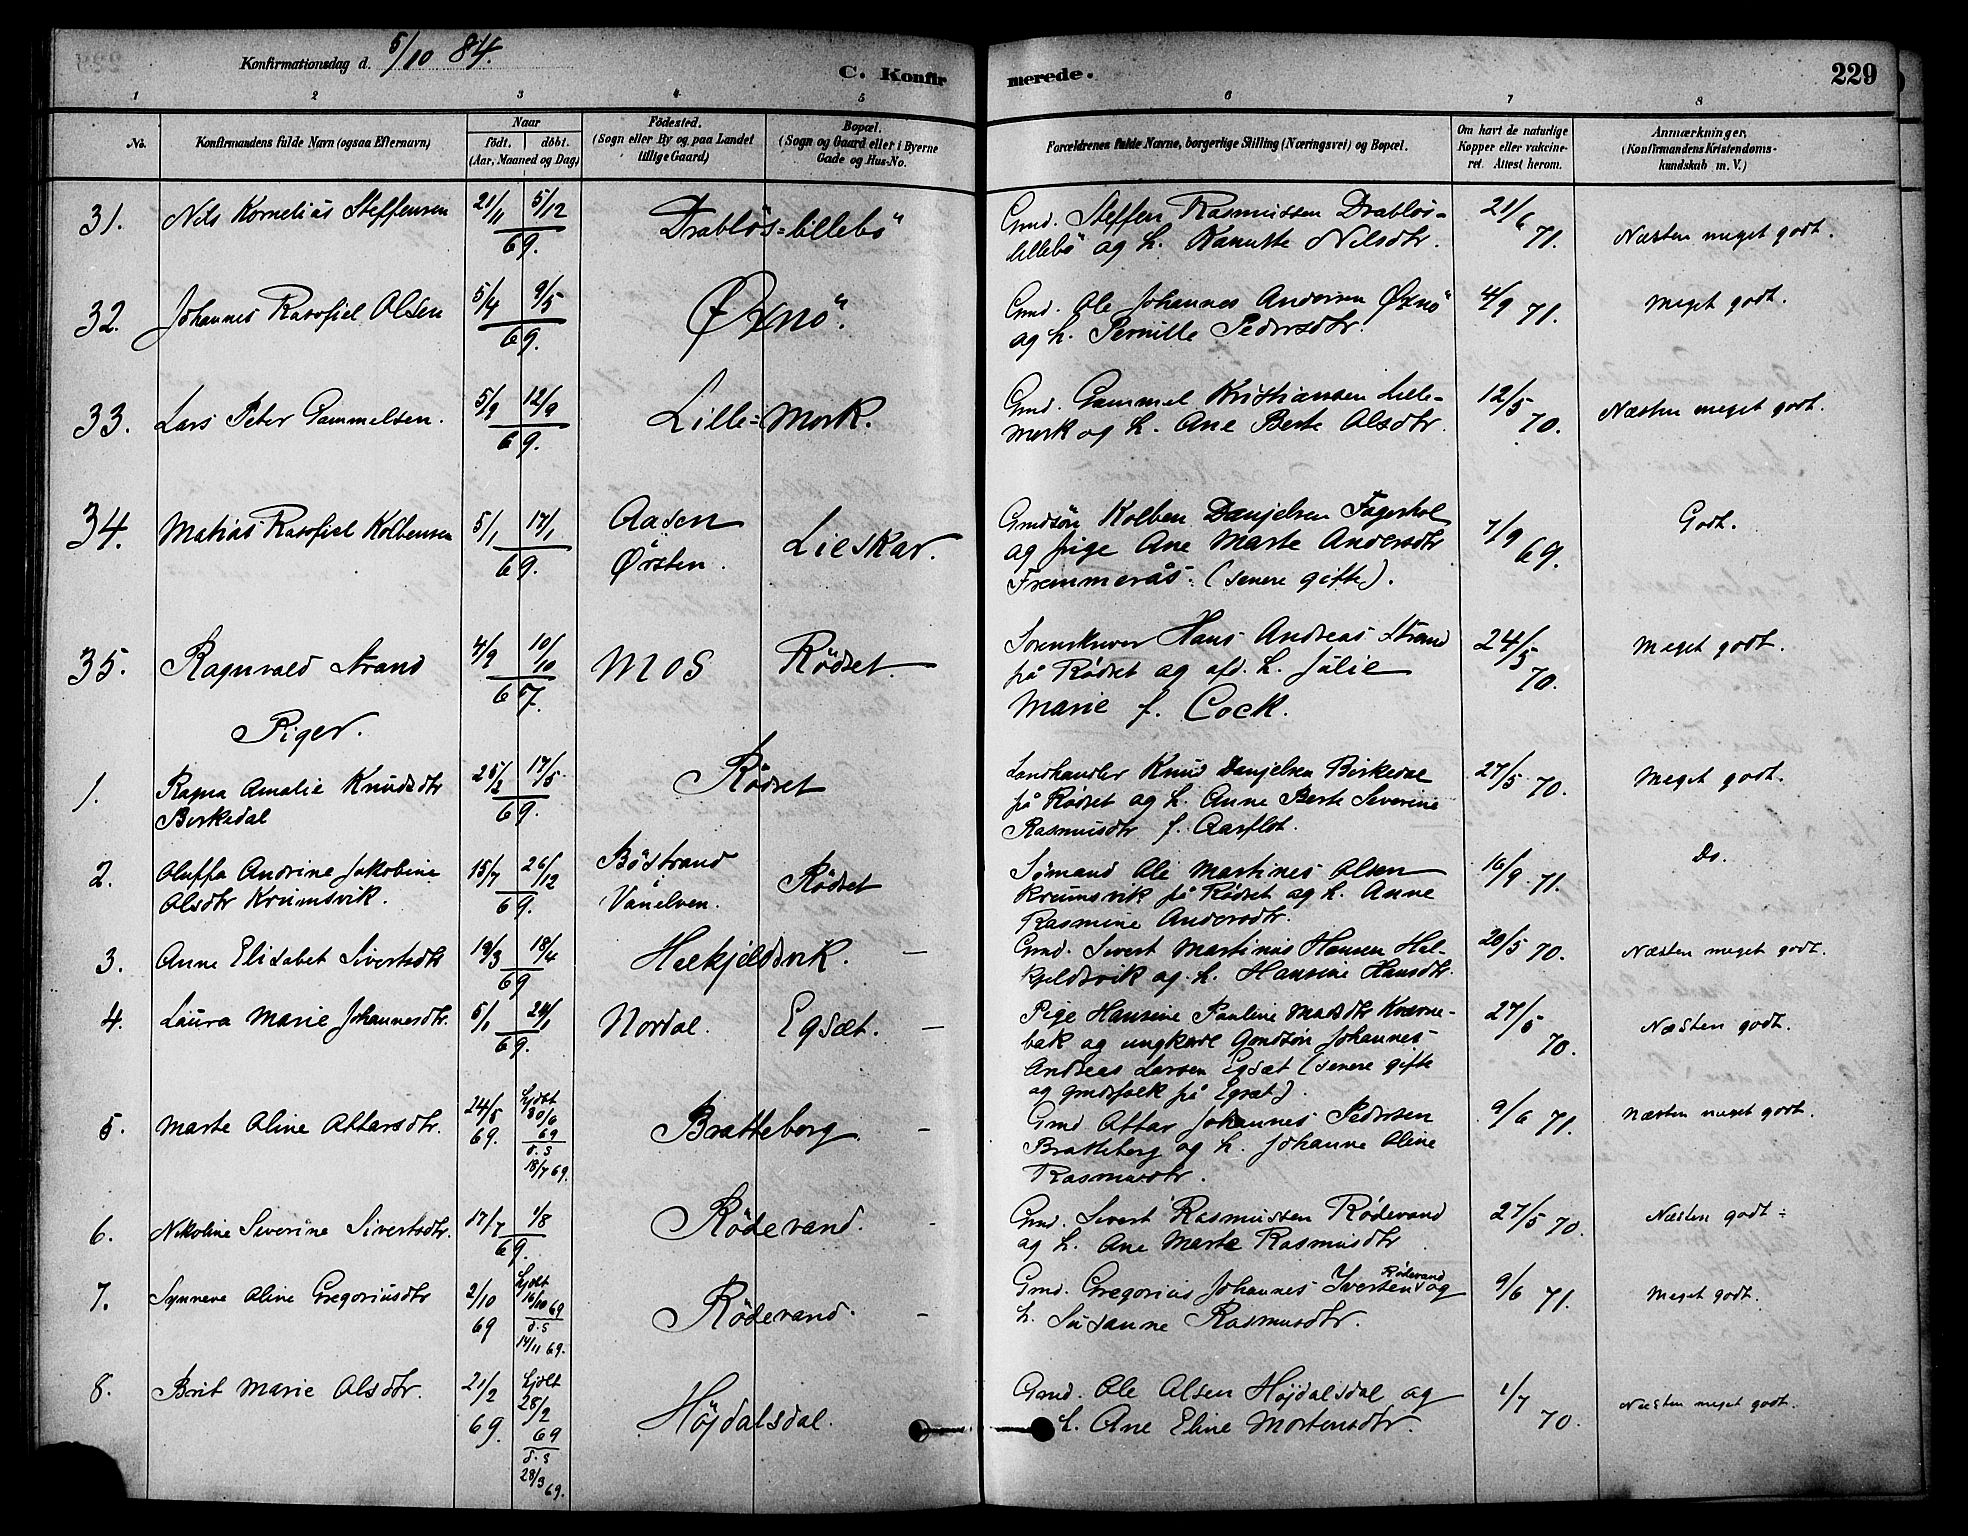 Konfirmationsdag d. 5/10 84.
C. Konfirmerede.
229
1 2 3 4 5 6 7 8
No.
Konfirmandens fulde Navn (ogsaa Efternavn)
Naar
födt. döbt.
(Aar, Maaned og Dag)
Födested.
(Sogn eller By og paa Landet
tillige Gaard)
Bopæl.
(Sogn og Gaard eller i Byerne
Gade og Hus-No.
Forældrenes fulde Navne, borgerlige Stilling (Næringsvei) og Bopæl.
Om havt de naturlige
Kopper eller vakcine-
ret. Attest herom.
Anmærkninger,
(Konfirmandens Kristendoms-
kundskab m. V.)
31. Nils Kornelius Steffensen 21/11 5/12 69. Drabløs-lillebö
Gmd. Steffen Rasmussen Drabløs-
lillebö og h. Kanutte Nilsdtr. 21/6 71. Næsten meget godt.
32. Johannes Olsen 5/4 9/5 69. Øxnö.
Gmd. Ole Johannes Andersen Øxnö
og h. Pernille Pedersdtr. 4/9 71. Meget godt.
33. Lars Peter Gammelsen. 5/9 12/9 69. Lille-Mork.
Gmd. Gammel Kristiansen Lille-
mork og h. Ane Berte Olsdtr. 12/5 70. Næsten meget godt.
34. Matias Kolbensen 5/1 17/1 69. Aasen
Örsten. Lieskar.
Gmdsön Kolben Danjelsen Fagerhol
og pige Ane Marte Andersdtr
Fremmerås. (senere gifte). 7/9 69. Godt.
35. Ragnvald Strand 4/9 10/10 67. Mos Rödset.
Sorenskriver Hans Andreas Strand
på Rödset og afd. h. Julie
Marie f. Cock. 24/5 70. Meget godt.
Piger.
1. Ragna Amalie Knudsdtr
Birkedal 17/5 69. Rödset
Landhandler Knud Danjelsen Birkedal
på Rödset og h. Anne Berte Severine
Rasmusdtr f. Aarflot. 27/5 70. Meget godt.
2. Oluffa Andrine Jakobine
Olsdtr Krumsvik. 15/7 26/12 69. Böstrand
Vanelven. Rödset
Sömand Ole Martines Olsen
Krumsvik på Rödset og h. Anne
Rasmine Andersdtr. 16/9 71. Do.
3. Anne Elisabet Sivertsdtr 19/3 18/4 69 Halkjeldsvik. —
Gmd. Sivert Martinus Hansen Hal-
kjeldsvik og h. Hansine Hansdtr. 20/5 70. Næsten meget godt.
4. Laura Marie Johannesdtr. 5/1 24/1 69. Nordal. Egsæt. —
Pige Hansine Pauline Madsdtr Kverne-
bak og ungkarl Gmdsön Johannes
Andreas Larsen Egsæt (senere gifte
og gmdsfolk på Egsæt). 27/5 70. Næsten godt.
5. Marte Aline Attarsdtr. 24/5 69. hjdbt
30/6 69
d. s
18/7 69. Bratteberg. —
Gmd Attar Johannes Pedersen
Bratteberg og h. Johanne Oline
Rasmusdtr. 9/6 71. Næsten meget godt.
6. Nikoline Severine Sivertsdtr. 17/7 1/8 69. Rödevand. —
Gmd. Sivert Rasmussen Rödevand
og h. Ane Marte Rasmusdtr 27/5 70. Næsten godt-
7. Synneve Oline Gregoriusdtr 2/10 69 hjdbt
69
d. s
14/11 69. Rödevand. —
Gmd. Gregorius Johannes Iversen Rödevand og
h. Susanne Rasmusdtr. 9/6 71. Meget godt.
8. Brit Marie Olsdtr. 21/2 69. hjdbt
28/2
69
d. s
28/3 69. Höjdalsdal.
Gmd. Ole Olsen Höjdalsdal og
h. Ane Eline Mortensdtr. 1/7 70. Næsten meget godt.